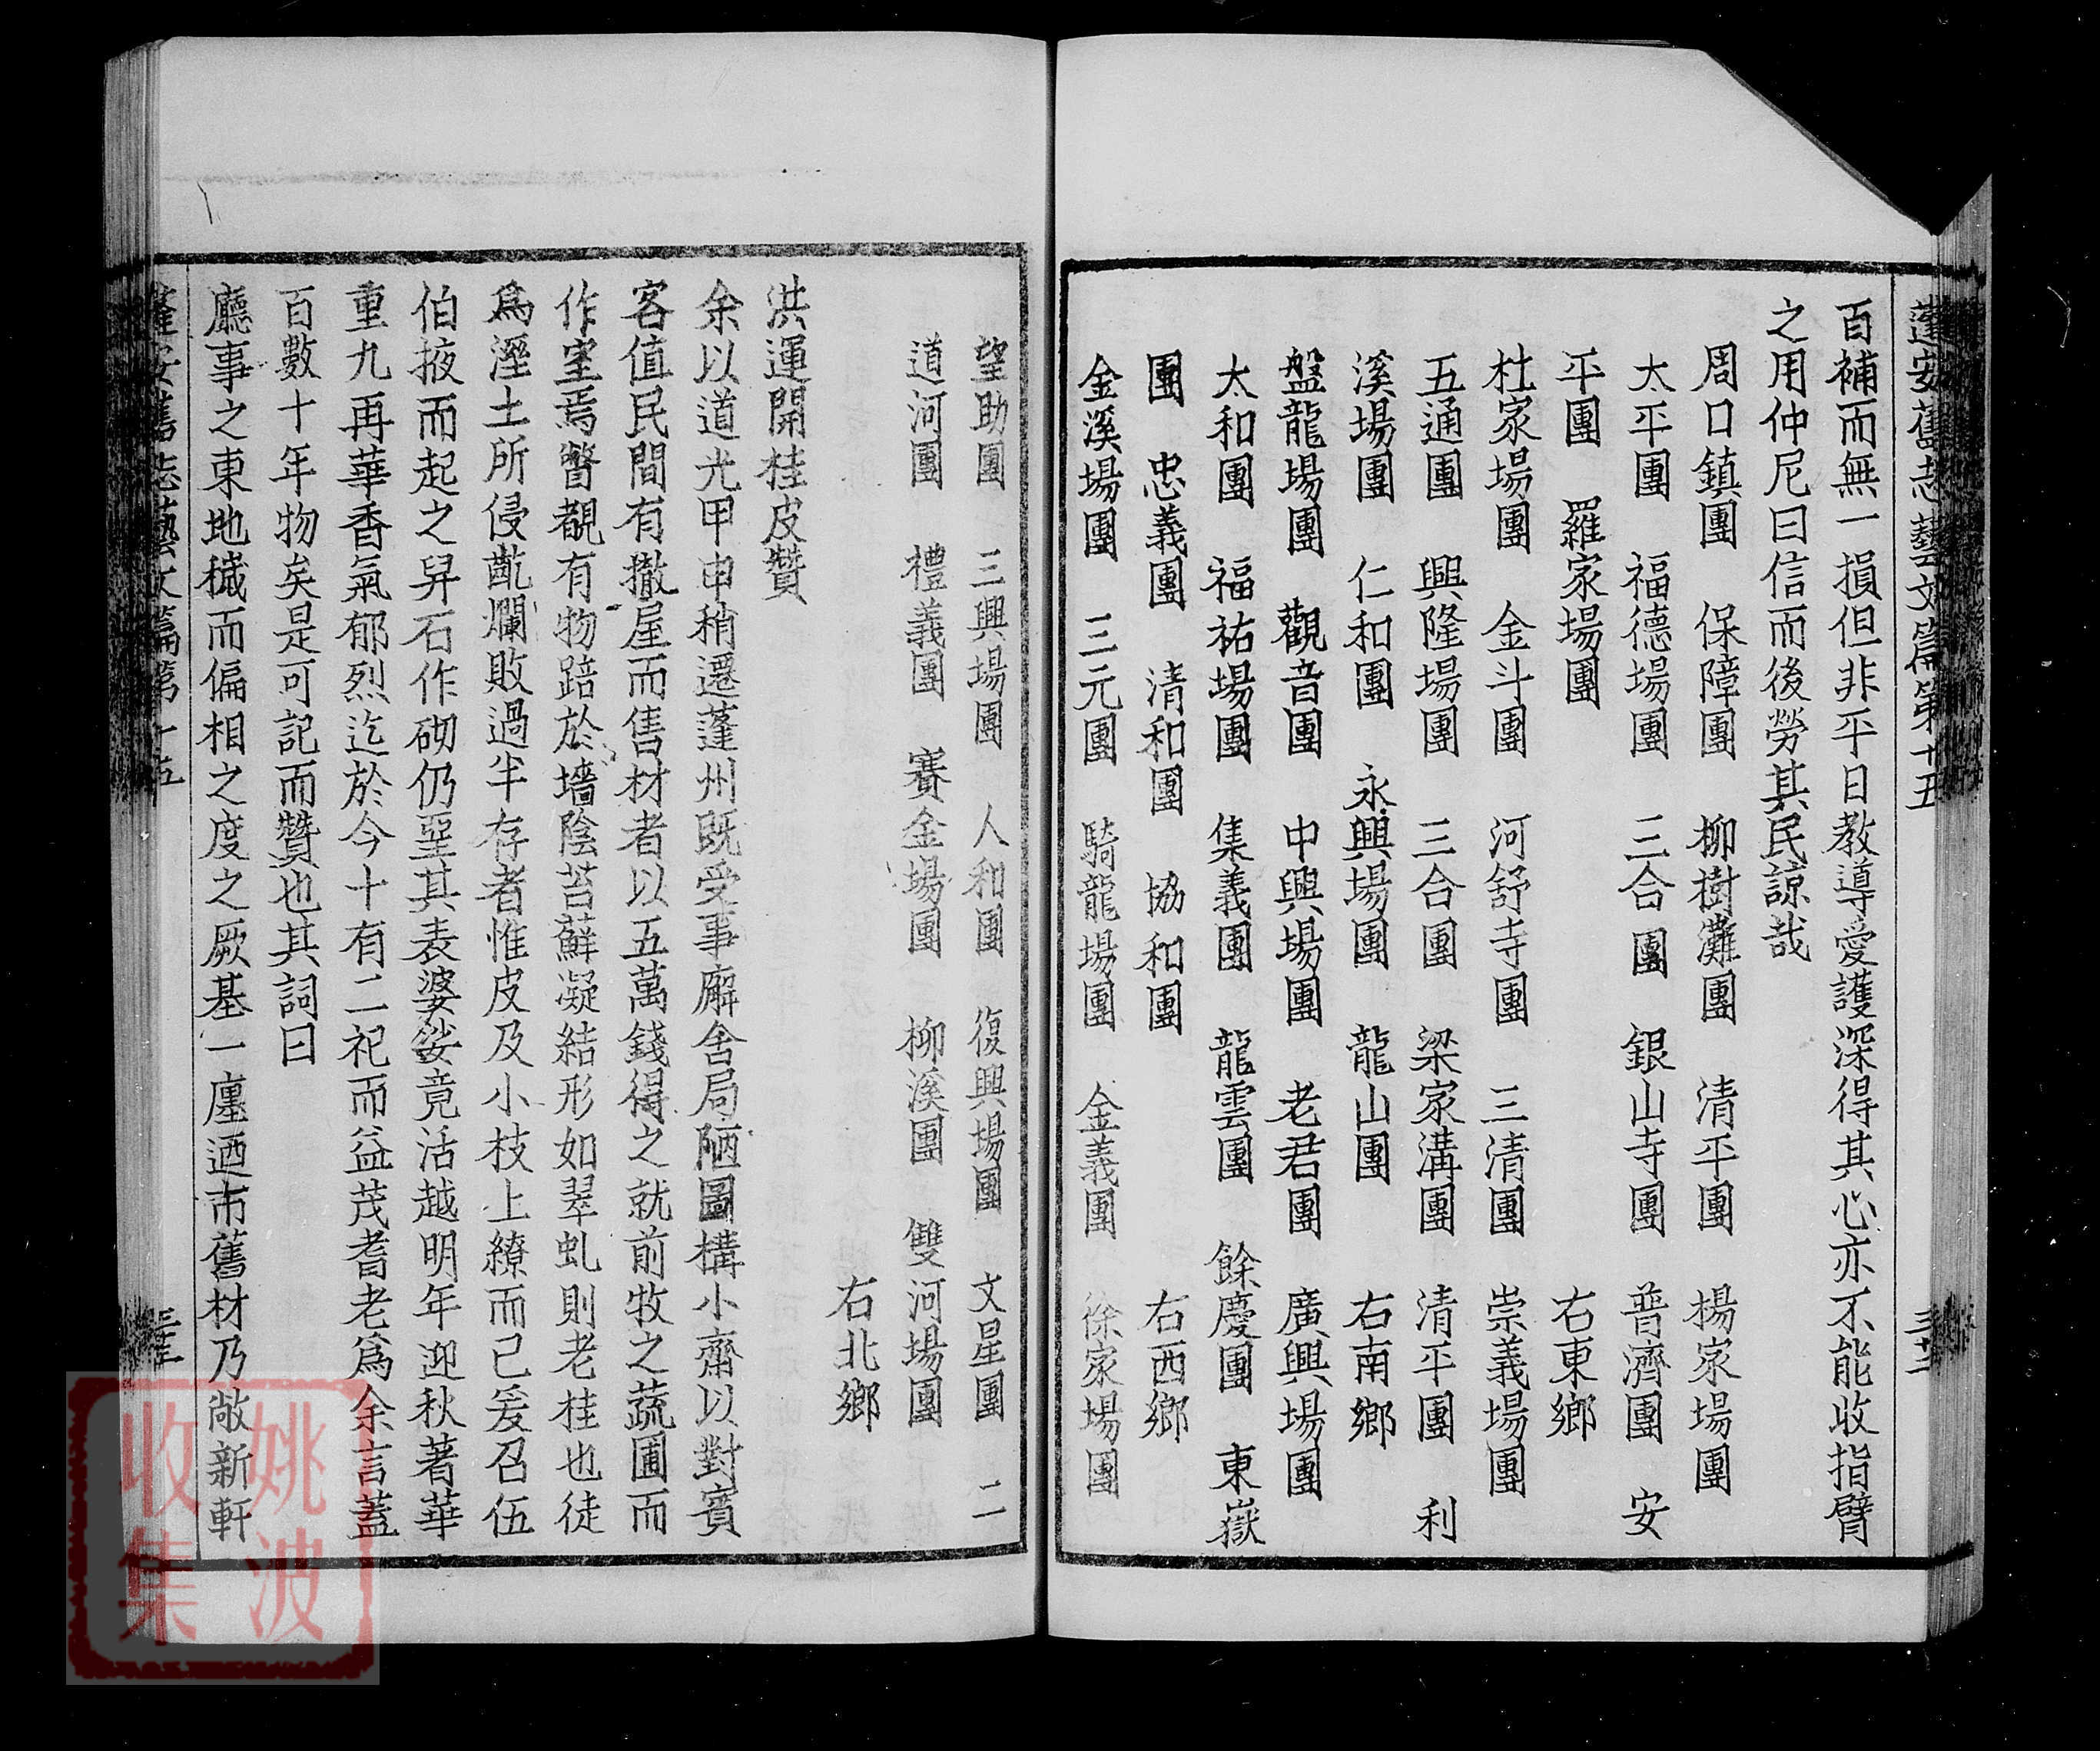 蓬安舊志藝文篇第十五
百補而無一損但非平日教導愛護深得其心亦不能收指臂
之用仲尼曰信而後勞其民諒哉
周口鎮團 保障團 柳樹灘團 清平團 楊家場團
太平團 福德場團 三合團 銀山寺團 普濟團 安
平團 羅家場團 右東鄉
杜家場團 金斗團 河舒寺團 三清團 崇義場團
五通團 興隆場團 三合團 梁家溝團 清平團 利
溪場團 仁和團 永興場團 龍山團 右南鄉
盤龍場團 觀音團 中興場團 老君團 廣興場團
太和團 福祐場團 集義團 龍雲團 餘慶團 東嶽
團 忠義團 清和團 協和團 右西鄉
金溪場團 三元團 騎龍場團 金義團 徐家場團
望助團 三興場團 人和團 復興場團 文星團 二
道河團 禮義團 賽金場團 柳溪團 雙河場團
右北鄉
洪運開桂皮贊
余以道光甲申稍遷蓬州既受事廨舍局陋圖構小齋以對賓
客值民間有撤屋而售材者以五萬錢得之就前牧之蔬圃而
作室焉瞥覩有物踣於墻陰苔蘚凝結形如翠虬則老桂也徒
爲溼土所侵齓爛敗過半存者惟皮及小枝上繚而已爰召伍
伯掖而起之舁石作砌仍堊其表婆娑竟活越明年迎秋著華
重九再華香氣郁烈迄於今十有二祀而益茂耆老爲余言蓋
百數十年物矣是可記而贊也其詞曰
廳事之東地穢而偏相之度之厥基一廛迺市舊材乃敞新軒
蓬安舊志藝文篇第十五
姚波
收集